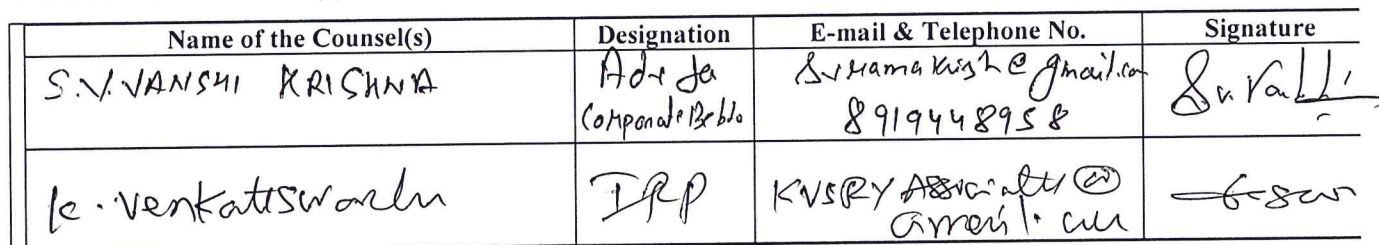 Name of the Counsel(s) Designation E-mail & Telephone No. Signature
S.V.VANSHI KRISHNA Adv for Svramakrish@gmail.com
Corporate Debtor 8919448958
K. Venkateswarlu IRP KVSRY Associates@
gmail.com